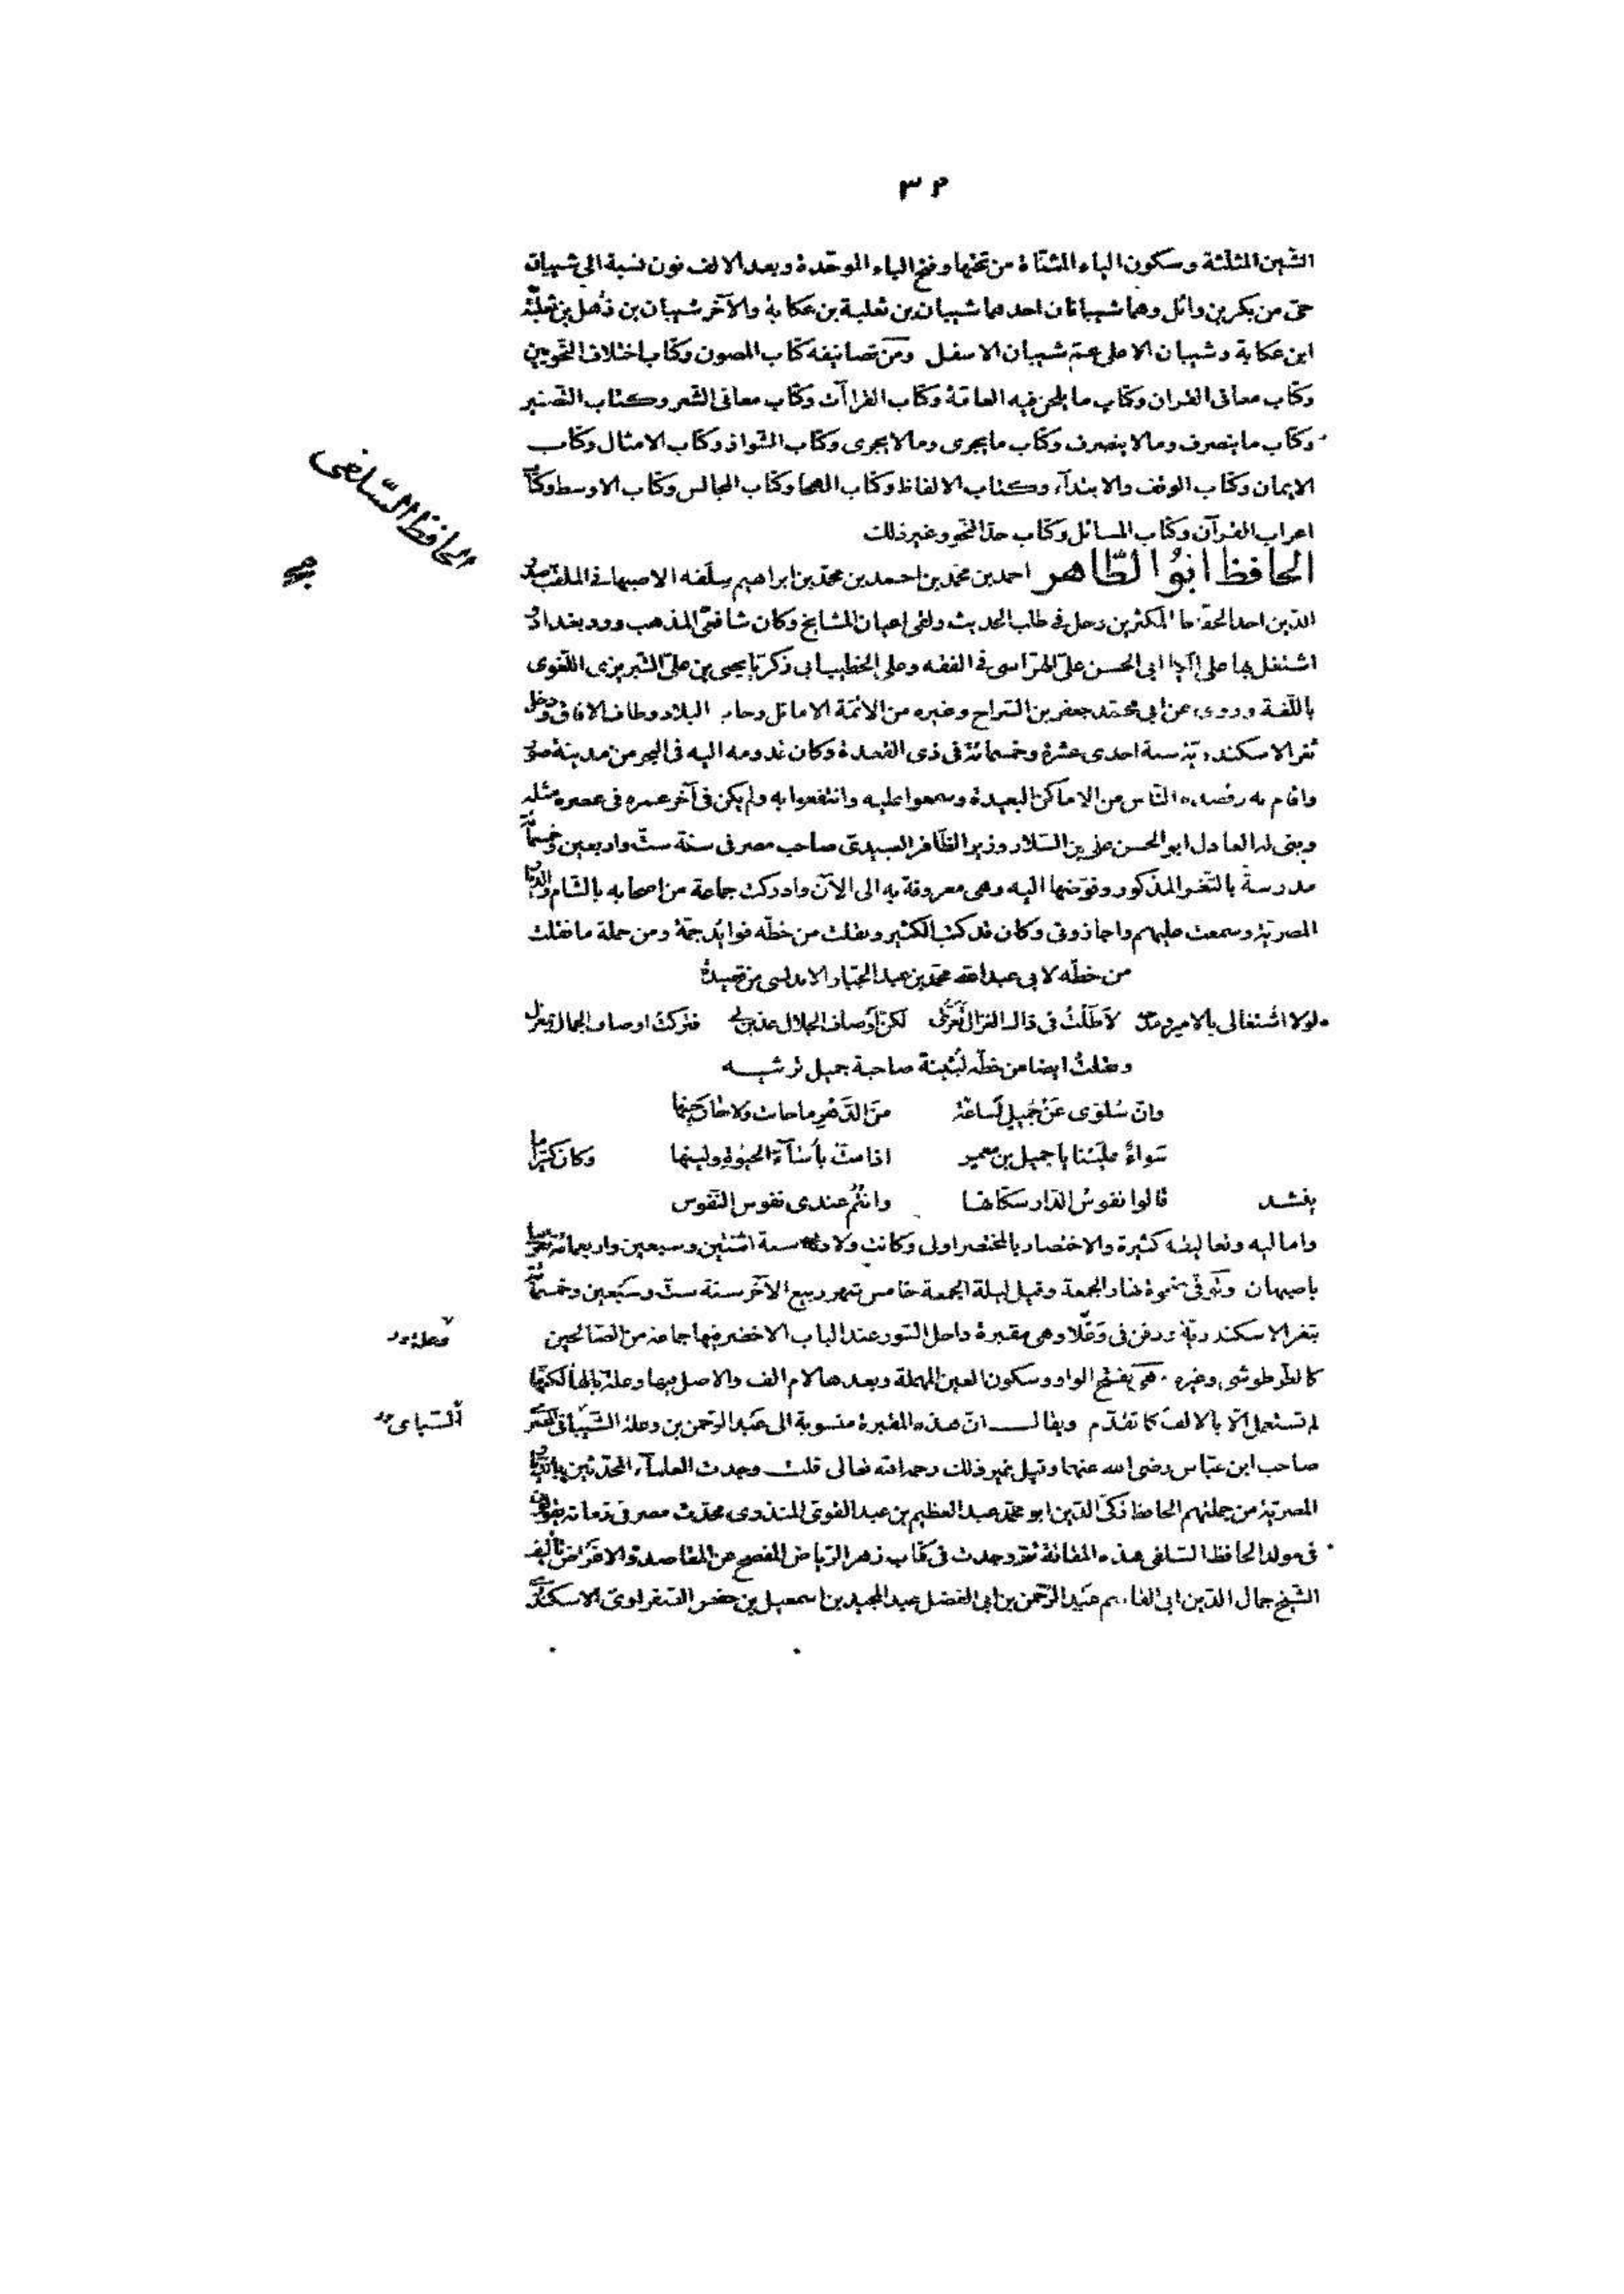 ٣٢
الشين المثلثة وسكون الياء المثناة من تحتها وفتح الباء الموحّدة وبعد الالف نون نسبة الى شيبان
حى من بكر بن وائل وهما شيبانان احدهما شيبان بن ثعلبة بن عكابة والآخر شيبان بن ذُهل بن ثعلبة
ابن عكابة وشيبان الاعلى عمّ شيبان الاسفل ومن تصانيفه كتاب المصون وكتاب اختلاف النحويين
وكتاب معانى القران وكتاب ما يلحن فيه العامّة وكتاب القراآت وكتاب معانى الشعر وكتاب التصغير
وكتاب ما ينصرف وما لا ينصرف وكتاب ما يجرى وما لا يجرى وكتاب الشواذ وكتاب الامثال وكتاب
الايمان وكتاب الوقف والابتدآء وكتاب الالفاظ وكتاب الهجا وكتاب المجالس وكتاب الاوسط وكتاب
اعراب القرآن وكتاب المسائل وكتاب حدّ النحو وغير ذلك
الحافظ السّلفى
الحافظ ابُو الطّاهر احمد بن محمّد بن احمد بن محمّد بن ابراهيم سِلَفه الاصبهانى الملقب صدر
الدّين احد الحفّاظ المكثرين رحل فى طلب الحديث ولقى اعيان المشايخ وكان شافعىّ المذهب وورد بغداد و
اشتغل بها على إلكيا ابى الحسن علىّ الهرّاسى فى الفقه وعلى الخطيب ابى زكريّا يحيى بن علىّ التبريزى اللّغوى
باللّغة وروى عن ابى محمّد جعفر بن السّراج وغيره من الائمّة الاماثل وجاب البلاد وطاف الآفاق ودخل
ثغر الاسكندريّة سنة احدى عشرة وخمسمائة فى ذى القعدة وكان قدومه اليه فى البحر من مدينة صور
واقام به وقصده النّاس من الاماكن البعيدة وسمعوا عليه وانتفعوا به ولم يكن فى آخر عمره فى عصره مثله
وبنى له العادل ابو الحسن على بن السّلار وزير الظّافر العبيدى صاحب مصر فى سنة ستّ واربعين وخمسمائة
مدرسةً بالثّغر المذكور وفوّضها اليه وهى معروفة به الى الآن وادركت جماعة من اصحابه بالشّام والديار
المصريّة وسمعت عليهم واجازونى وكان قد كتب الكثير ونقلت من خطّه فوائد جمّة ومن جملة ما نقلت
من خطّه لابى عبد الله محمّد بن عبد الجبّار الاندلسى من قصيدةٍ
لولا اشتغالى بالامير ومدحه لاَطَلْتُ فى ذاك الغزال تَغَزُّلى لكنّ اَوصاف الجلال عذبن لى فتركتُ اوصاف الجمال بمعزل
ونقلتُ ايضا من خطّه لبُثينة صاحبة جميل ترثيه
وانّ سُلوّى عَنْ جَميلٍ لَساعةٌ من الدّهر ما حانت ولا حان حينها
سَواءٌ علينا يا جميل بن معمر اذا متّ بأسآء الحيوة ولينها وكان كثيرا ما
ينشد قالوا نفوسُ الدّار سكّانها وانتُم عندى نفوس النّفوس
واماليه وتعاليقه كثيرة والاختصار بالمختصر اولى وكانت ولادته سنة اثنتين وسبعين واربعمائة تقريبا
باصبهان وتُوفى ضحوة نهار الجمعة وقيل ليلة الجمعة خامس شهر ربيع الآخر سنة ستّ وسَبعين وخمسمائة
بثغر الاسكندريّة ودفن فى وَعْلا وهى مقبرة داخل السّور عند الباب الاخضر فيها جماعة من الصّالحين
وعلة
كالطّرطوشى وغيره. هى بفتح الواو وسكون العين المهملة وبعدها لام الف والاصل فيها وعلة بالهآ لكنّها
لم تستعمل الّا بالالف كما تقدّم ويقال انّ هذه المقبرة منسوبة الى عَبد الرّحمن بن وعلة السَّبَائى المصرى
السبائى
صاحب ابن عبّاس رضى الله عنهما وقيل غير ذلك رحمه الله تعالى قلت وجدت العلمآء المحدّثين بالديار
المصريّة من جملتهم الحافظ زكىّ الدّين ابو محمّد عبد العظيم بن عبد القوىّ المنذرى محدّث مصر فى زمانه يقولون
فى مولد الحافظ السّلفى هذه المقالة ثمّ وجدت فى كتاب زهر الرّياض المفصح عن المقاصد والاغراض تأليف
الشّيخ جمال الدّين ابى القاسم عبد الرّحمن بن ابى الفضل عبد المجيد بن اسمعيل بن حفص الصّفراوىّ الاسكندرى